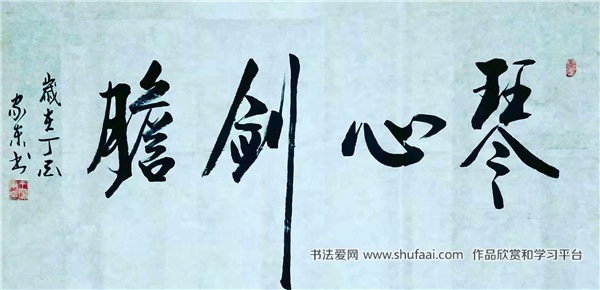 琴心劍膽
歲在丁酉
家东书
书法爱网 www.shufaai.com 作品欣赏和学习平台